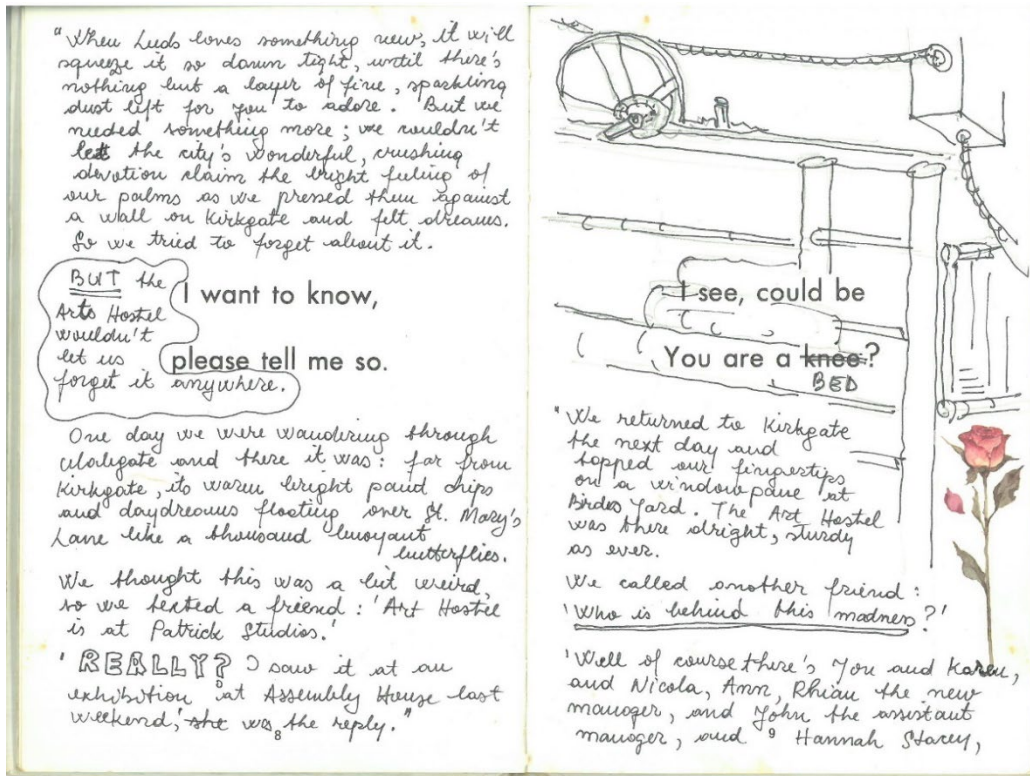 "When Leeds loves something new, it will
squeeze it so damn tight, until there's
nothing but a layer of fine, sparkling
dust left for you to adore. But we
needed something more; we couldn't
let the city's wonderful, crushing
devotion claim the bright feeling of
our palms as we pressed them against
a wall on Kirkgate and felt dreams.
So we tried to forget about it.
BUT the
Arts Hostel
wouldn't
let us
forget it anywhere.
I want to know,
please tell me so.
One day we were wandering through
and there it was: far from
Kirkgate, its warm bright paint chips
and daydreams floating over St. Mary's
Lane like a thousand buoyant
butterflies.
We thought this was a bit weird,
so we texted a friend: 'Art Hostel
is at Patrick Studios.'
'REALLY? I saw it at an
exhibition at Assembly House last
weekend,' she was the reply."
8
I see, could be
You are a knee?
BED
"We returned to Kirkgate
the next day and
tapped our fingertips
on a windowpane at
Birdes Yard. The Art Hostel
was there alright, sturdy
as ever.
We called another friend:
'Who is behind this madness?'
'Well of course there's You and Karen,
and Nicola, Ann, Rhian the new
manager, and John the assistant
manager, and Hannah Stacey,
9